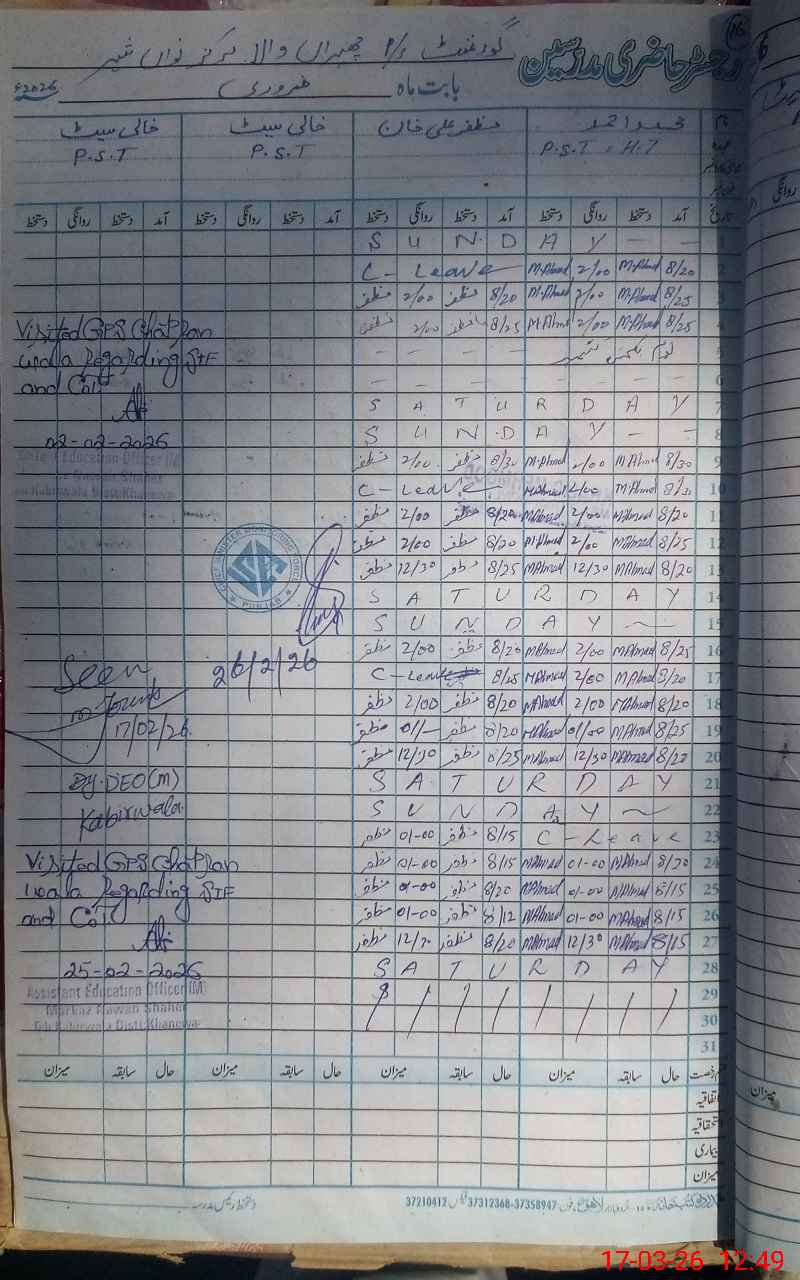 16
رجسٹر حاضری مدرسین
گورنمنٹ p/s چھتراں والا مرکز نواں شہر
بابت ماہ فروری 2026ء
نام محمد احمد مظفر علی خان خالی سیٹ خالی سیٹ
عہدہ P.S.T, H.T P.S.T P.S.T
تاریخ آمد دستخط روانگی دستخط آمد دستخط روانگی دستخط آمد دستخط روانگی دستخط آمد دستخط روانگی دستخط
1 S U N D A Y — —
2 8/20 M.Ahmd 2/00 M.Ahmd C - Leave
3 8/25 M.Ahmd 2/00 M.Ahmd 8/20 مظفر 2/00 مظفر
4 8/25 M.Ahmd 2/00 M.Ahmd 8/25 مظفر 2/00 مظفر
5 یوم یکجہتی کشمیر
6 — — — —
7 S A T U R D A Y
8 S U N D A Y — —
9 8/30 M.Ahmd 2/00 M.Ahmd 8/30 مظفر 2/00 مظفر
10 8/30 M.Ahmd 2/00 MAhmad C - Leave
11 8/20 MAhmad 2/00 MAhmad 8/20 مظفر 2/00 مظفر
12 8/25 MAhmad 2/00 M.Ahmad 8/20 مظفر 2/00 مظفر
13 8/20 MAhmad 12/30 MAhmad 8/25 مظفر 12/30 مظفر
14 S A T U R D A Y
15 S U N D A Y
16 8/25 MAhmad 2/00 MAhmad 8/20 مظفر 2/00 مظفر
17 8/20 MAhmad 2/00 MAhmad 8/25 C - Leave
18 8/20 MAhmad 2/00 MAhmad 8/20 مظفر 2/00 مظفر
19 8/25 MAhmad 01/00 MAhmad 8/20 مظفر 01/- مظفر
20 8/22 MAhmad 12/30 MAhmad 8/25 مظفر 12/30 مظفر
21 S A T U R D A Y
22 S U N D A Y
23 C - Leave 8/15 مظفر 01-00 مظفر
24 8/30 MAhmad 01-00 MAhmad 8/15 مظفر 01-00 مظفر
25 8/15 MAhmad 01-00 MAhmad 8/20 مظفر 01-00 مظفر
26 8/15 MAhmad 01-00 MAhmad 8/12 مظفر 01-00 مظفر
27 8/15 MAhmad 12/30 MAhmad 8/20 مظفر 12/30 مظفر
28 S A T U R D A Y
29
30
31
Visited GPS Chatran
wala Regarding STF
and Cot
02-02-2026
Assistant Education Officer (M)
Markaz Nawan Shaher
Teh Kabirwala Distt: Khanewal
CHIEF MINISTER MONITORING FORCE
PUNJAB
26/2/26
Seen
17/02/26
Dy. DEO (M)
Kabirwala
Visited GPS Chatran
wala Regarding STF
and Cot
25-02-2026
Assistant Education Officer (M)
Markaz Nawan Shaher
Teh Kabirwala Distt: Khanewal
رخصت حال سابقہ میزان حال سابقہ میزان حال سابقہ میزان حال سابقہ میزان
اتفاقیہ
استحقاقیہ
بیماری
میزان
دستخط رئیس مدرسہ
37210412 37312368-37358947
میزان
روانگی
17-03-26 12:49